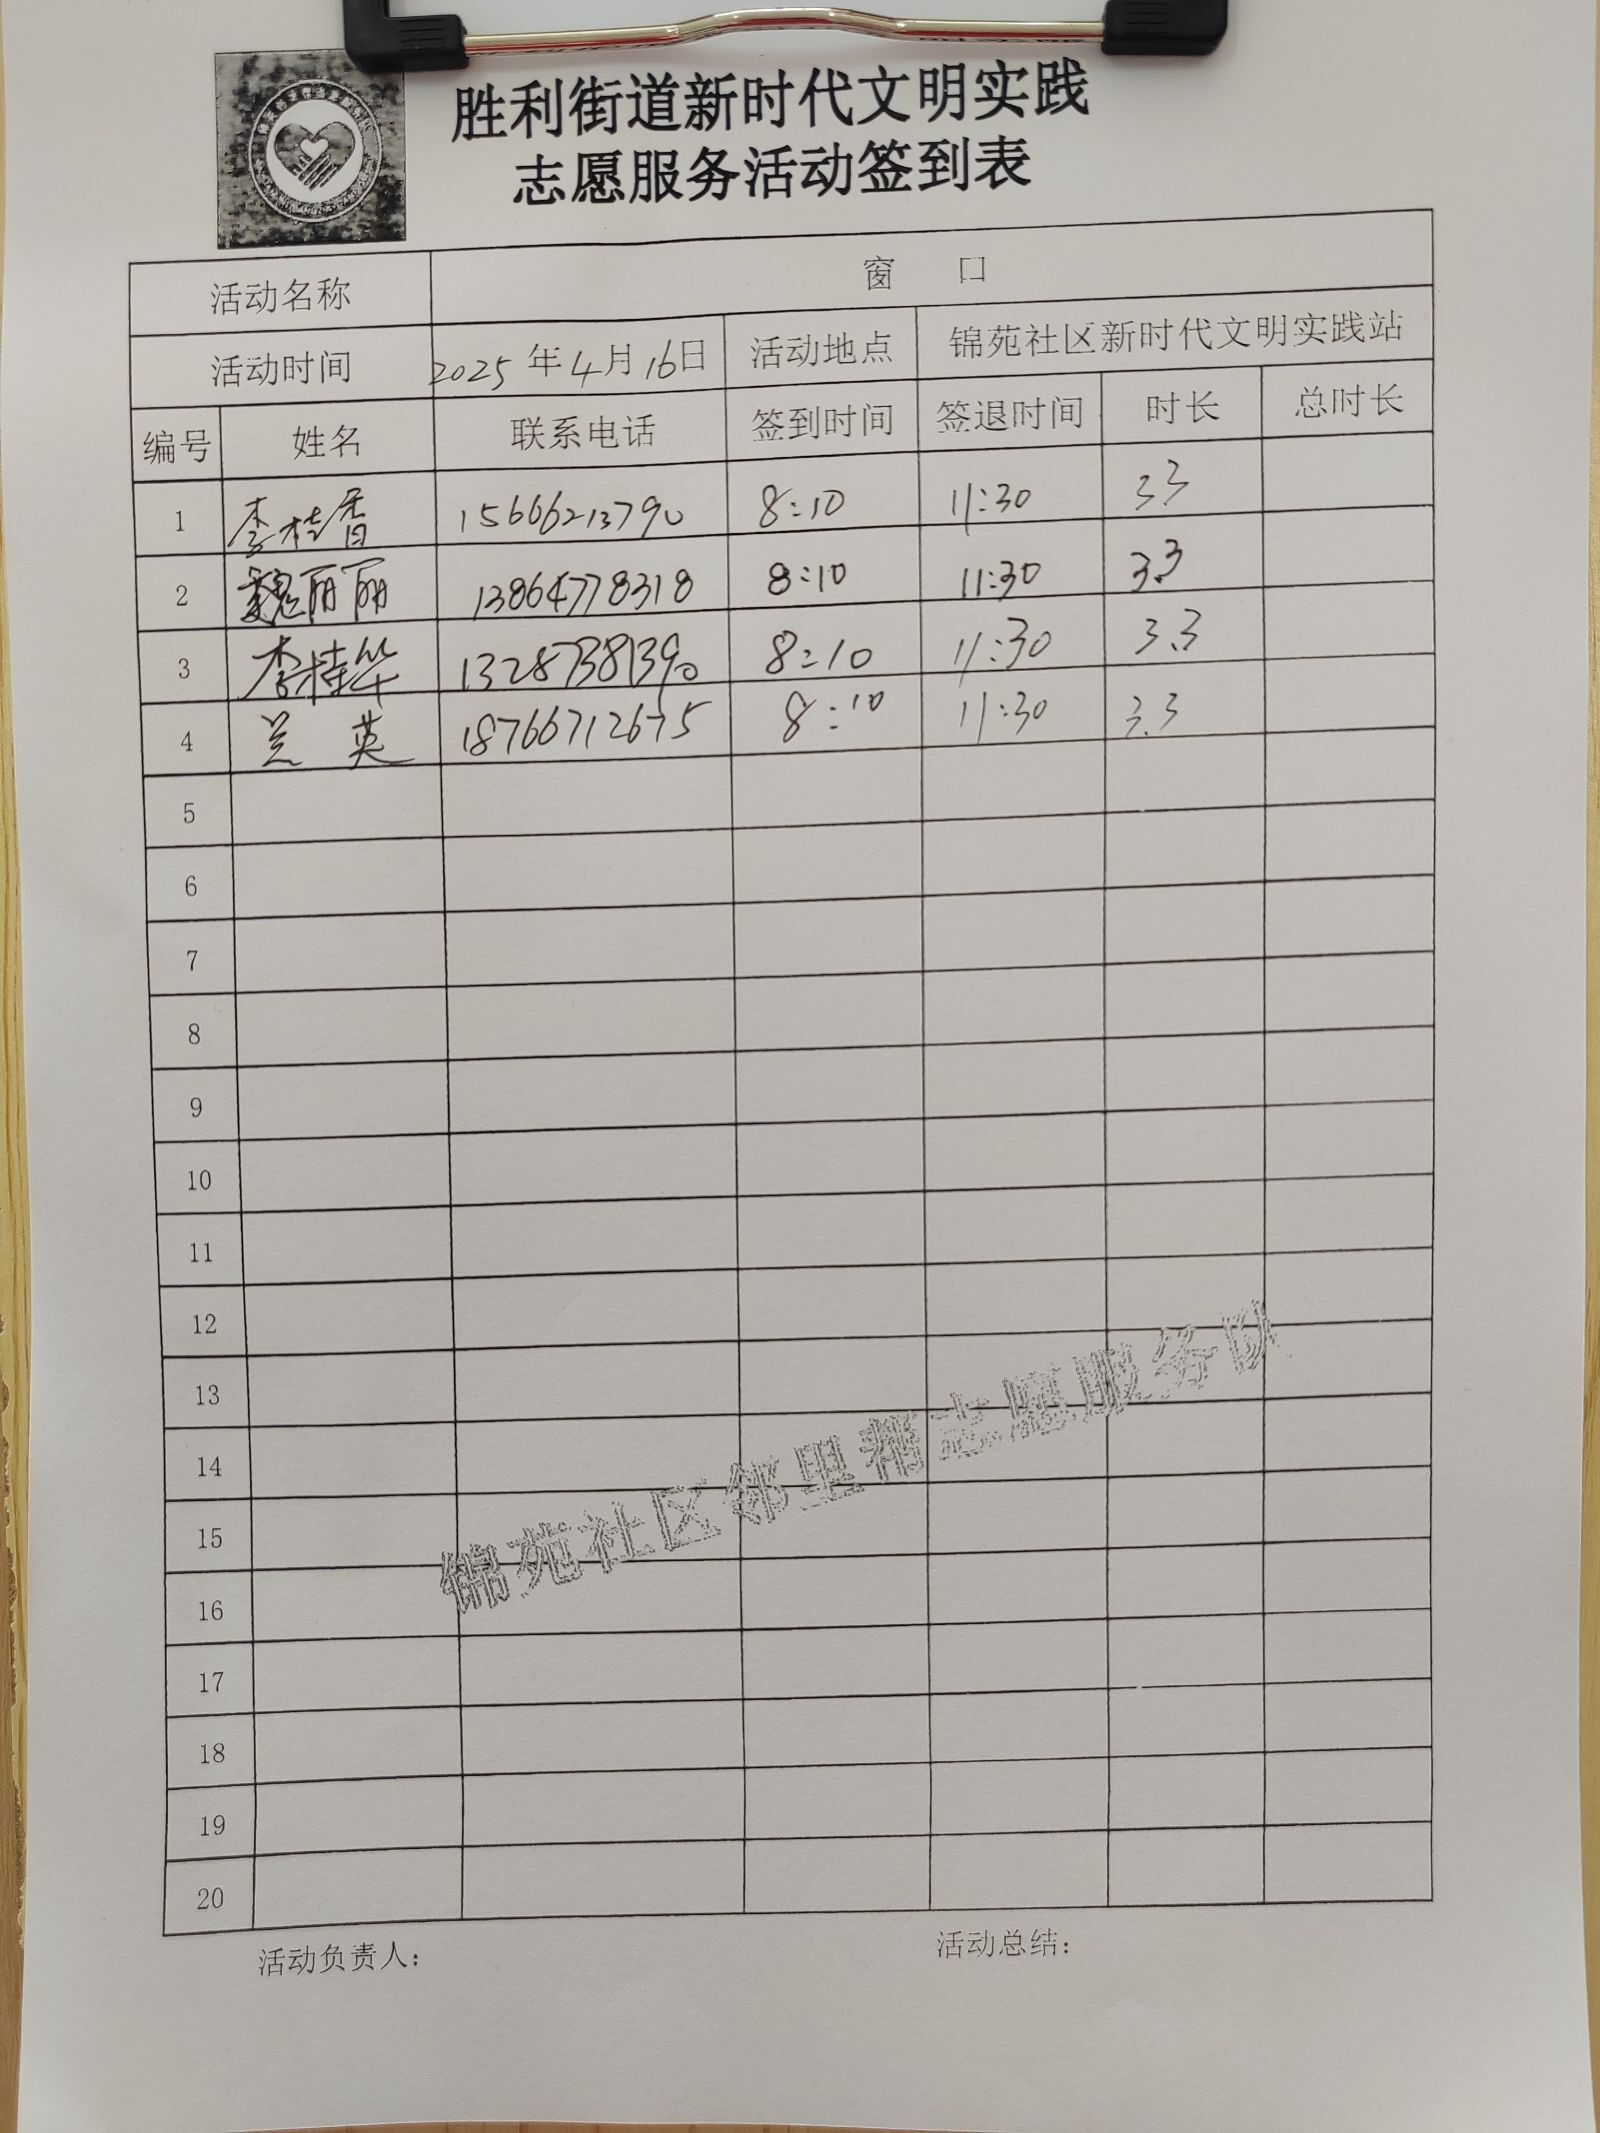 胜利街道新时代文明实践
志愿服务活动签到表
活动名称 窗 口
活动时间 2025年4月16日 活动地点 锦苑社区新时代文明实践站
编号 姓名 联系电话 签到时间 签退时间 时长 总时长
1 李桂香 15666213790 8:10 11:30 3.3
2 魏丽丽 13864778318 8:10 11:30 3.3
3 李桂华 13287381390 8:10 11:30 3.3
4 兰英 18766712675 8:10 11:30 3.3
5
6
7
8
9
10
11
12
13
14
15
16
17
18
19
20
锦苑社区邻里帮志愿服务队
活动负责人： 活动总结：